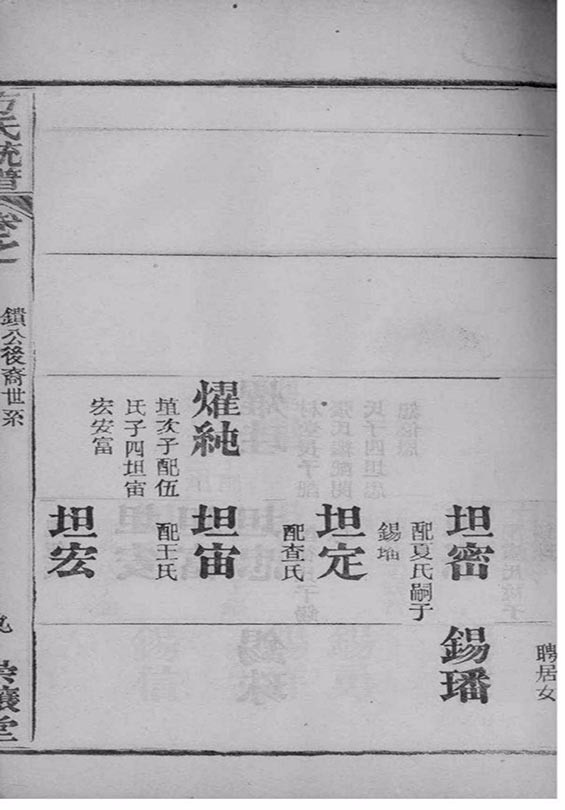 聘居女
坦密
配夏氏嗣子
錫璠
錫璠
坦定
配查氏
燿純
埴次子配伍
氏子四坦宙
宏安富
坦宙
配王氏
坦宏
方氏統譜
卷之一
鎖公後裔世系
九
崇讓堂